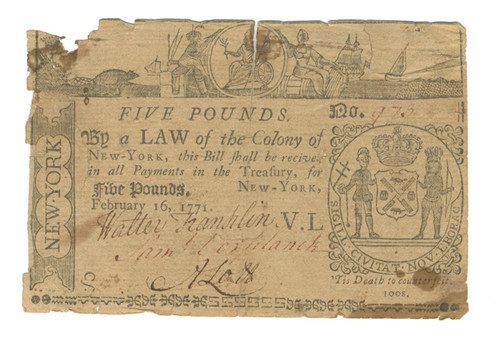 FIVE POUNDS.
No. 973
By a LAW of the Colony of
NEW-YORK, this Bill shall be received
in all Payments in the Treasury, for
Five Pounds. NEW-YORK,
February 16, 1771.
Walter Franklin V.L
A Lott
NEW-YORK
SIGILL. CIVITAT. NOV. EBORAC.
'Tis Death to counterfeit.